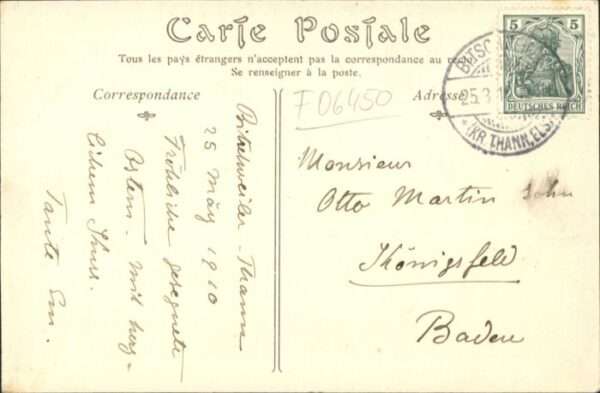 Carte Postale
Tous les pays étrangers n'acceptent pas la correspondance au recto
Se renseigner à la poste.
Correspondance
Adresse
F 06450
5 5
DEUTSCHES REICH
25.3.1
(KR. THANN, ELS.)
Bitschweiler-Thann
25 März 1910
Fröhliche gesegnete
Ostern. Mit herz-
lichem
Tante Em.
Monsieur
Otto Martin Sohn
Königsfeld
Baden